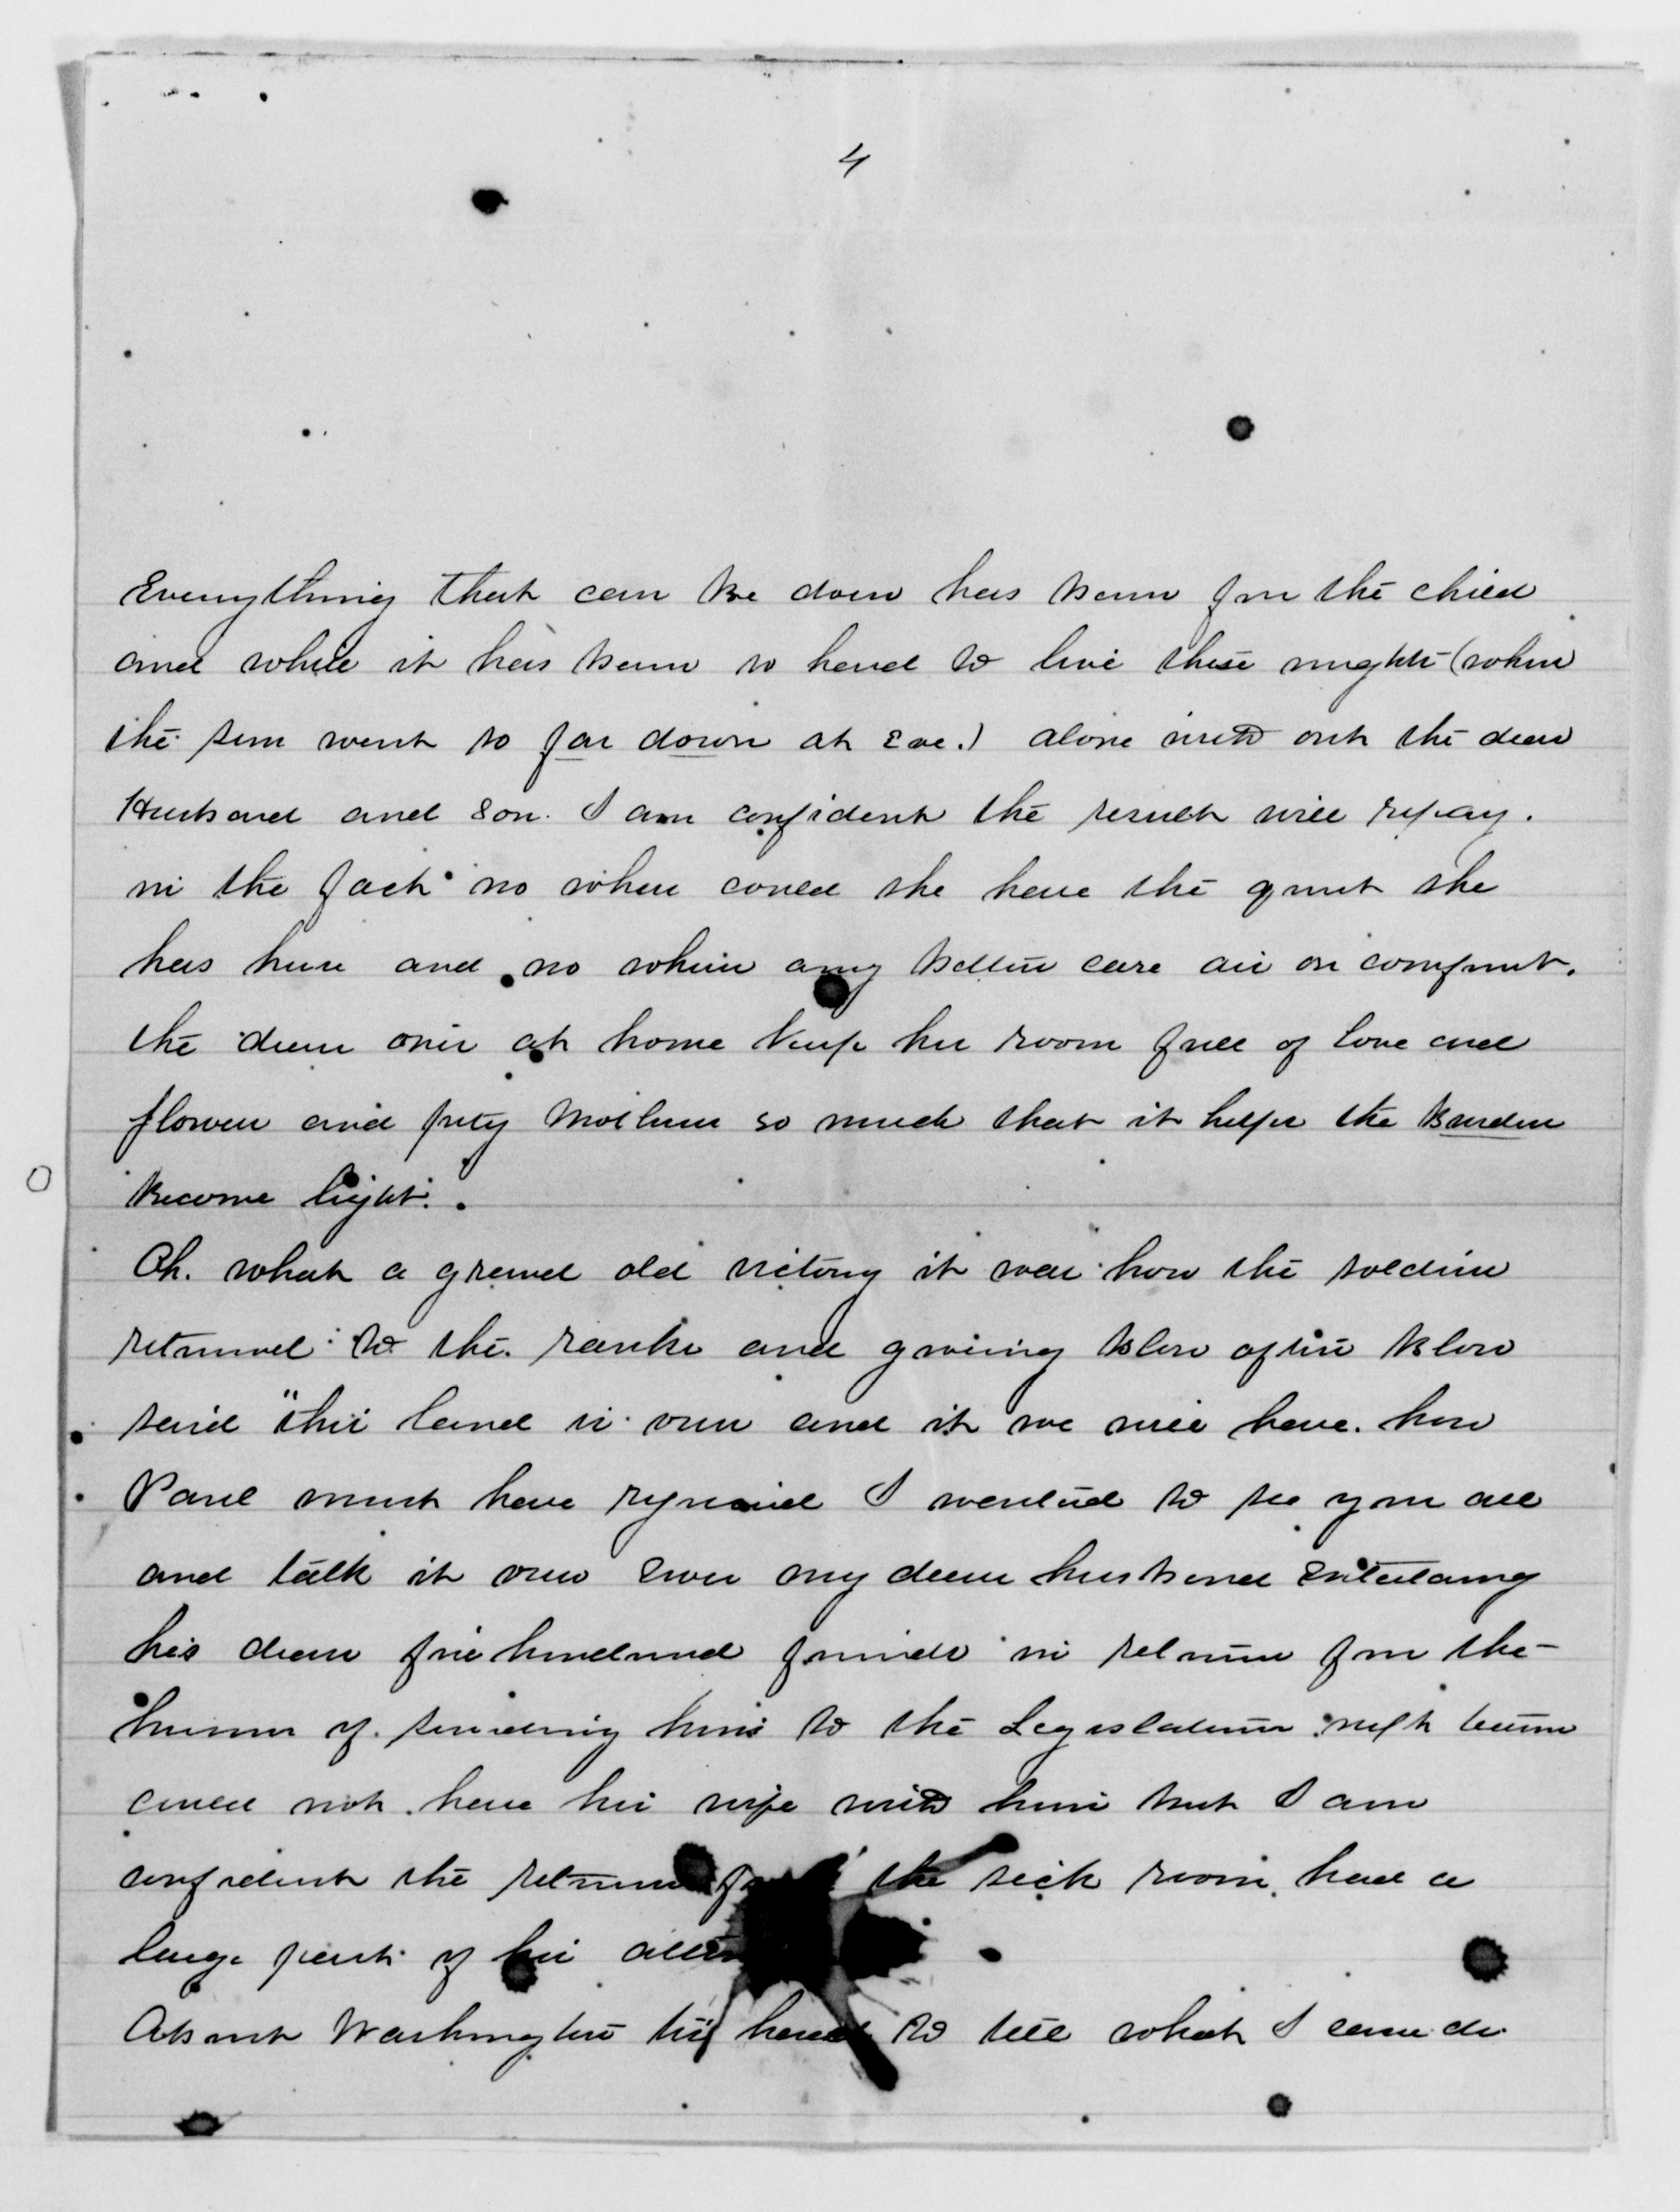 4
Everything that can be done has been for the child
and while it has been so hard to live these nights (when
the sun went so far down at Eve.) alone with out the dear
Husband and Son. I am confident the result will repay.
in the fact no where could she have the quiet she
has here and no where any better care air or comfort.
the dear ones at home keep her room full of love and
flowers and pity Mother so much that it helps the burden
become light.
Oh. what a grand old victory it was how the soldiers
returned to the ranks and giving blow after blow
said "this land is ours and it we will have. how
Paul must have rejoiced I wanted to see you all
and talk it over Even my dear husband Entertaing
his dear five hundred friends in return for the
honor of sending him to the Legislature
could not have his wife with him but I am
confident the returns the sick room had a
large part of his
About Washington tis hard to tell what I can do